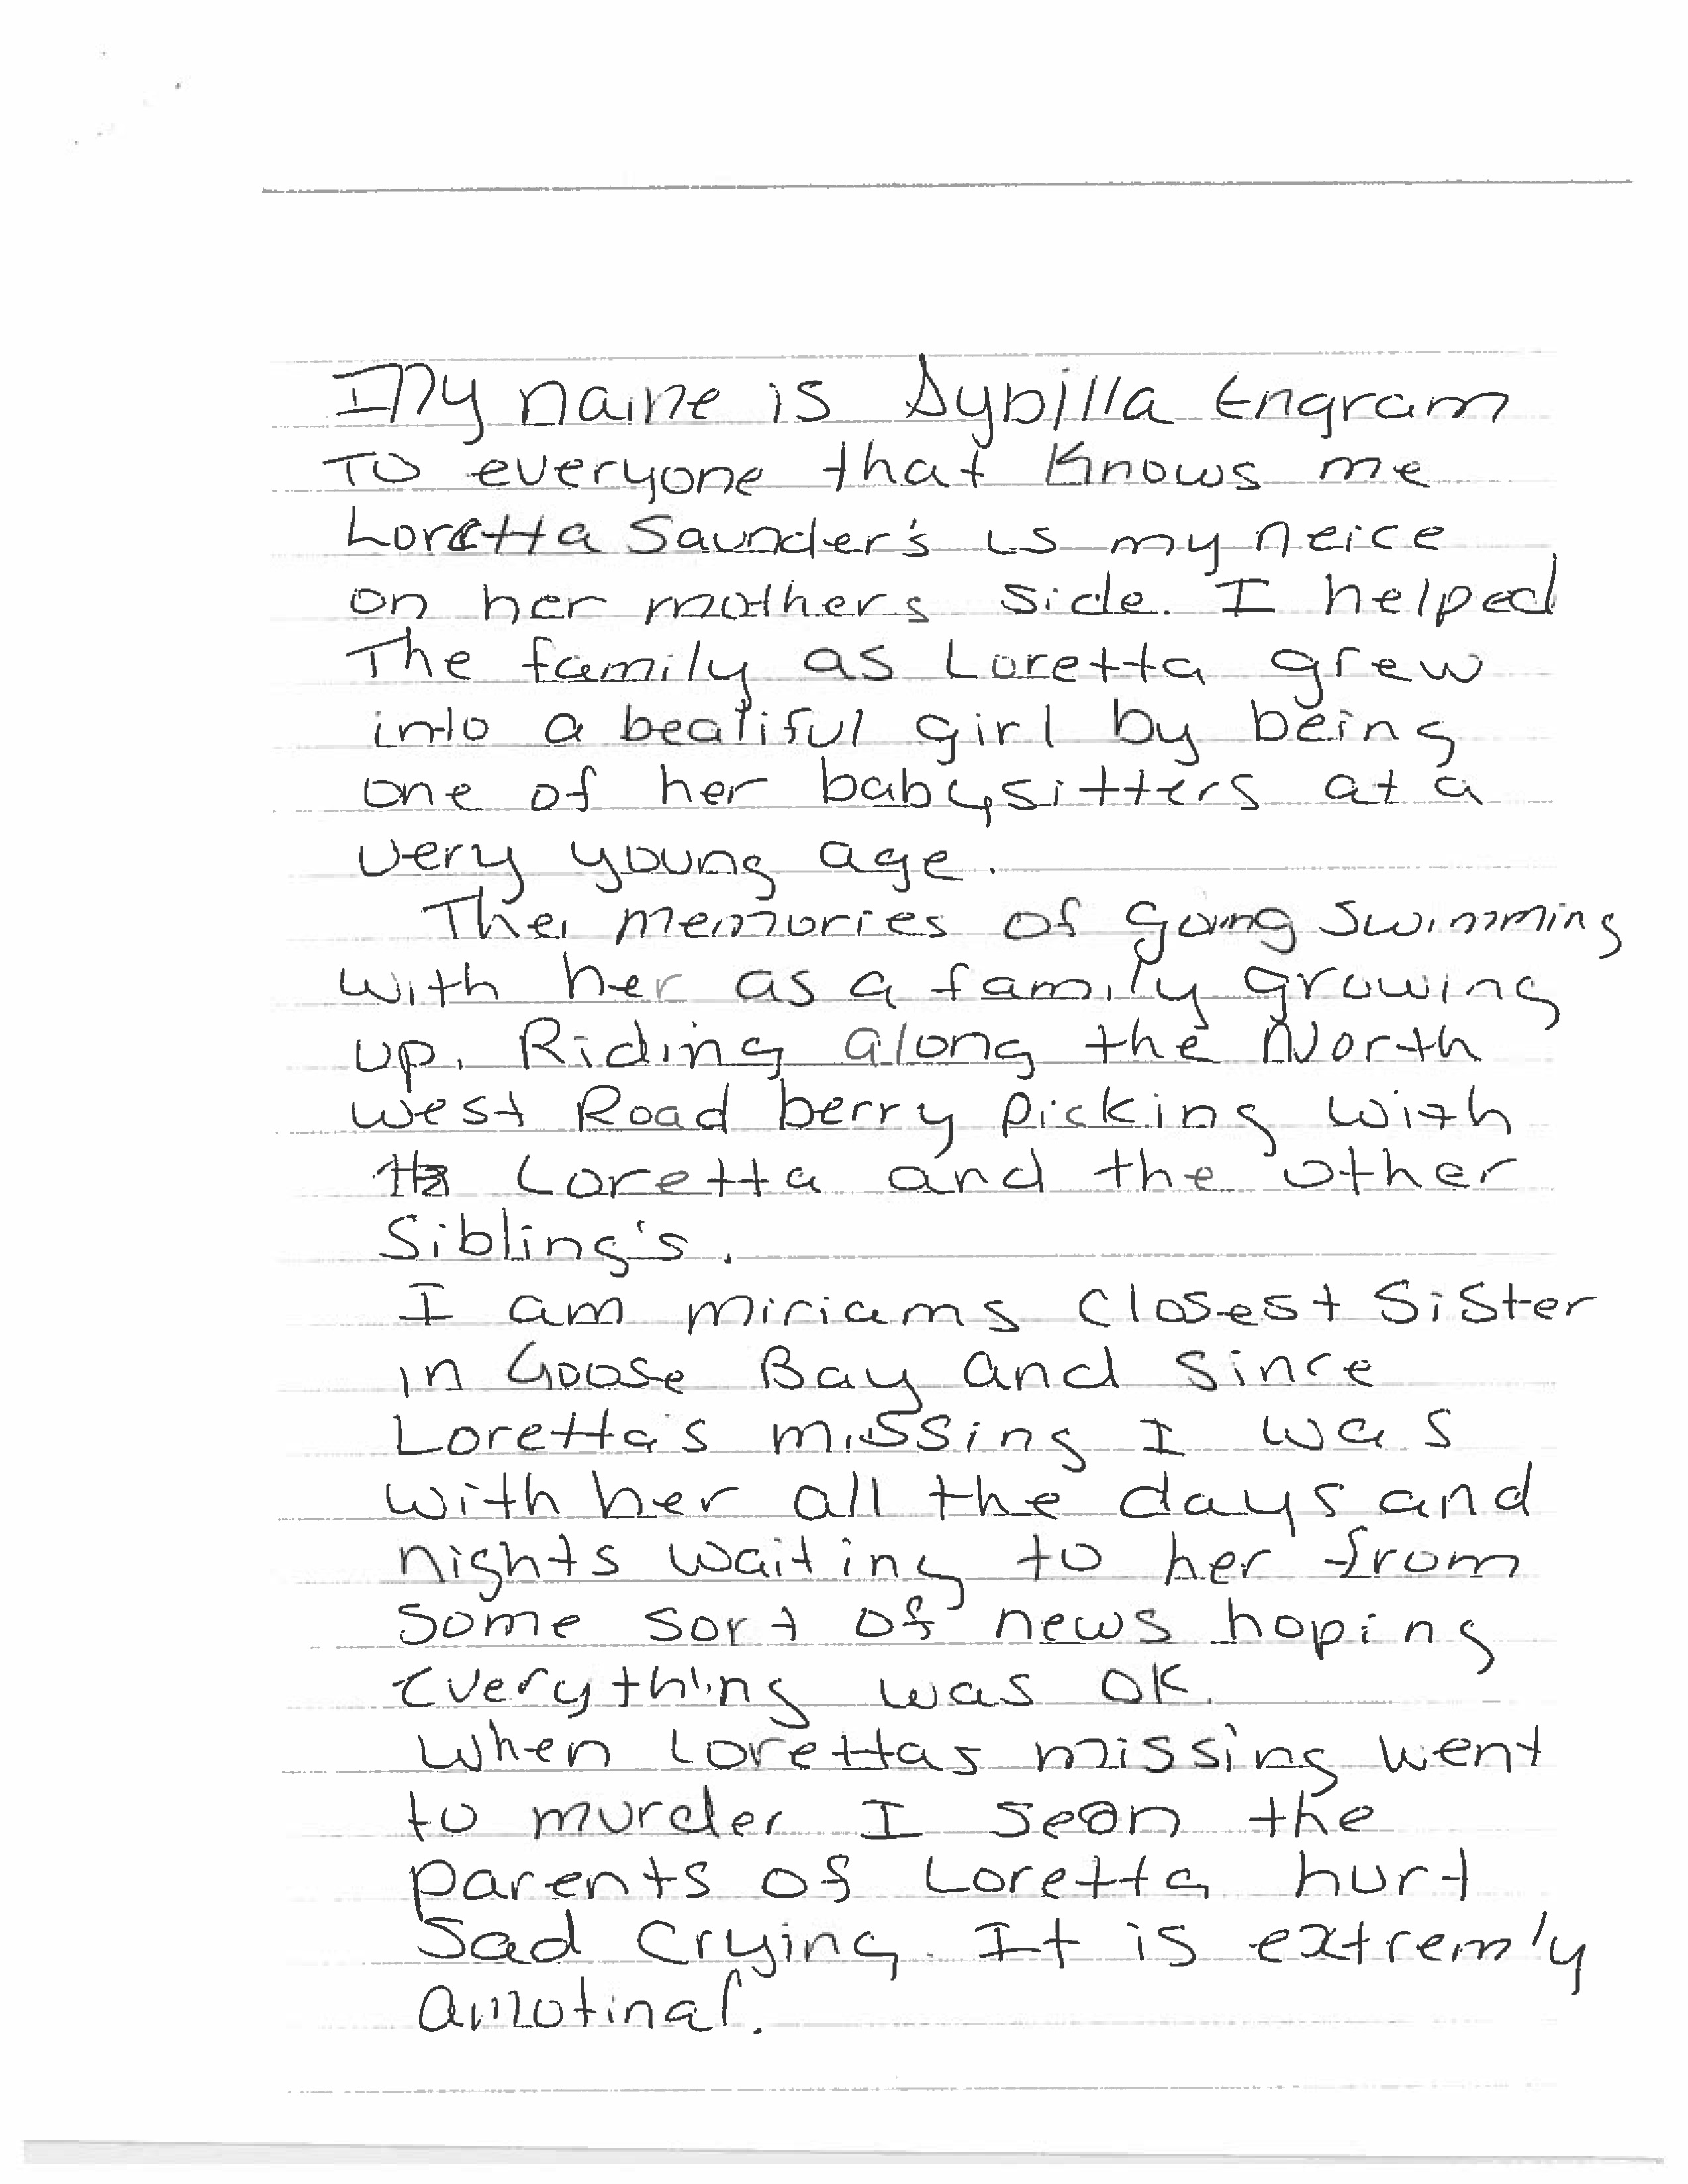 My name is Sybilla Engram
To everyone that Knows me
Loretta Saunder's is my neice
on her mothers side. I helped
The family as Loretta grew
into a beatiful girl by being
one of her babysitters at a
very young age.
The memories of going swimming
with her as a family growing
up. Riding along the North
west Road berry picking with
Loretta and the other
Sibling's.
I am miriams closest Sister
in Goose Bay and Since
Loretta's missing I was
with her all the days and
nights waiting to her from
some sort of news hoping
everything was OK.
When Lorettas missing went
to murder I seen the
parents of Loretta hurt
Sad Crying. It is extremly
amotinal.